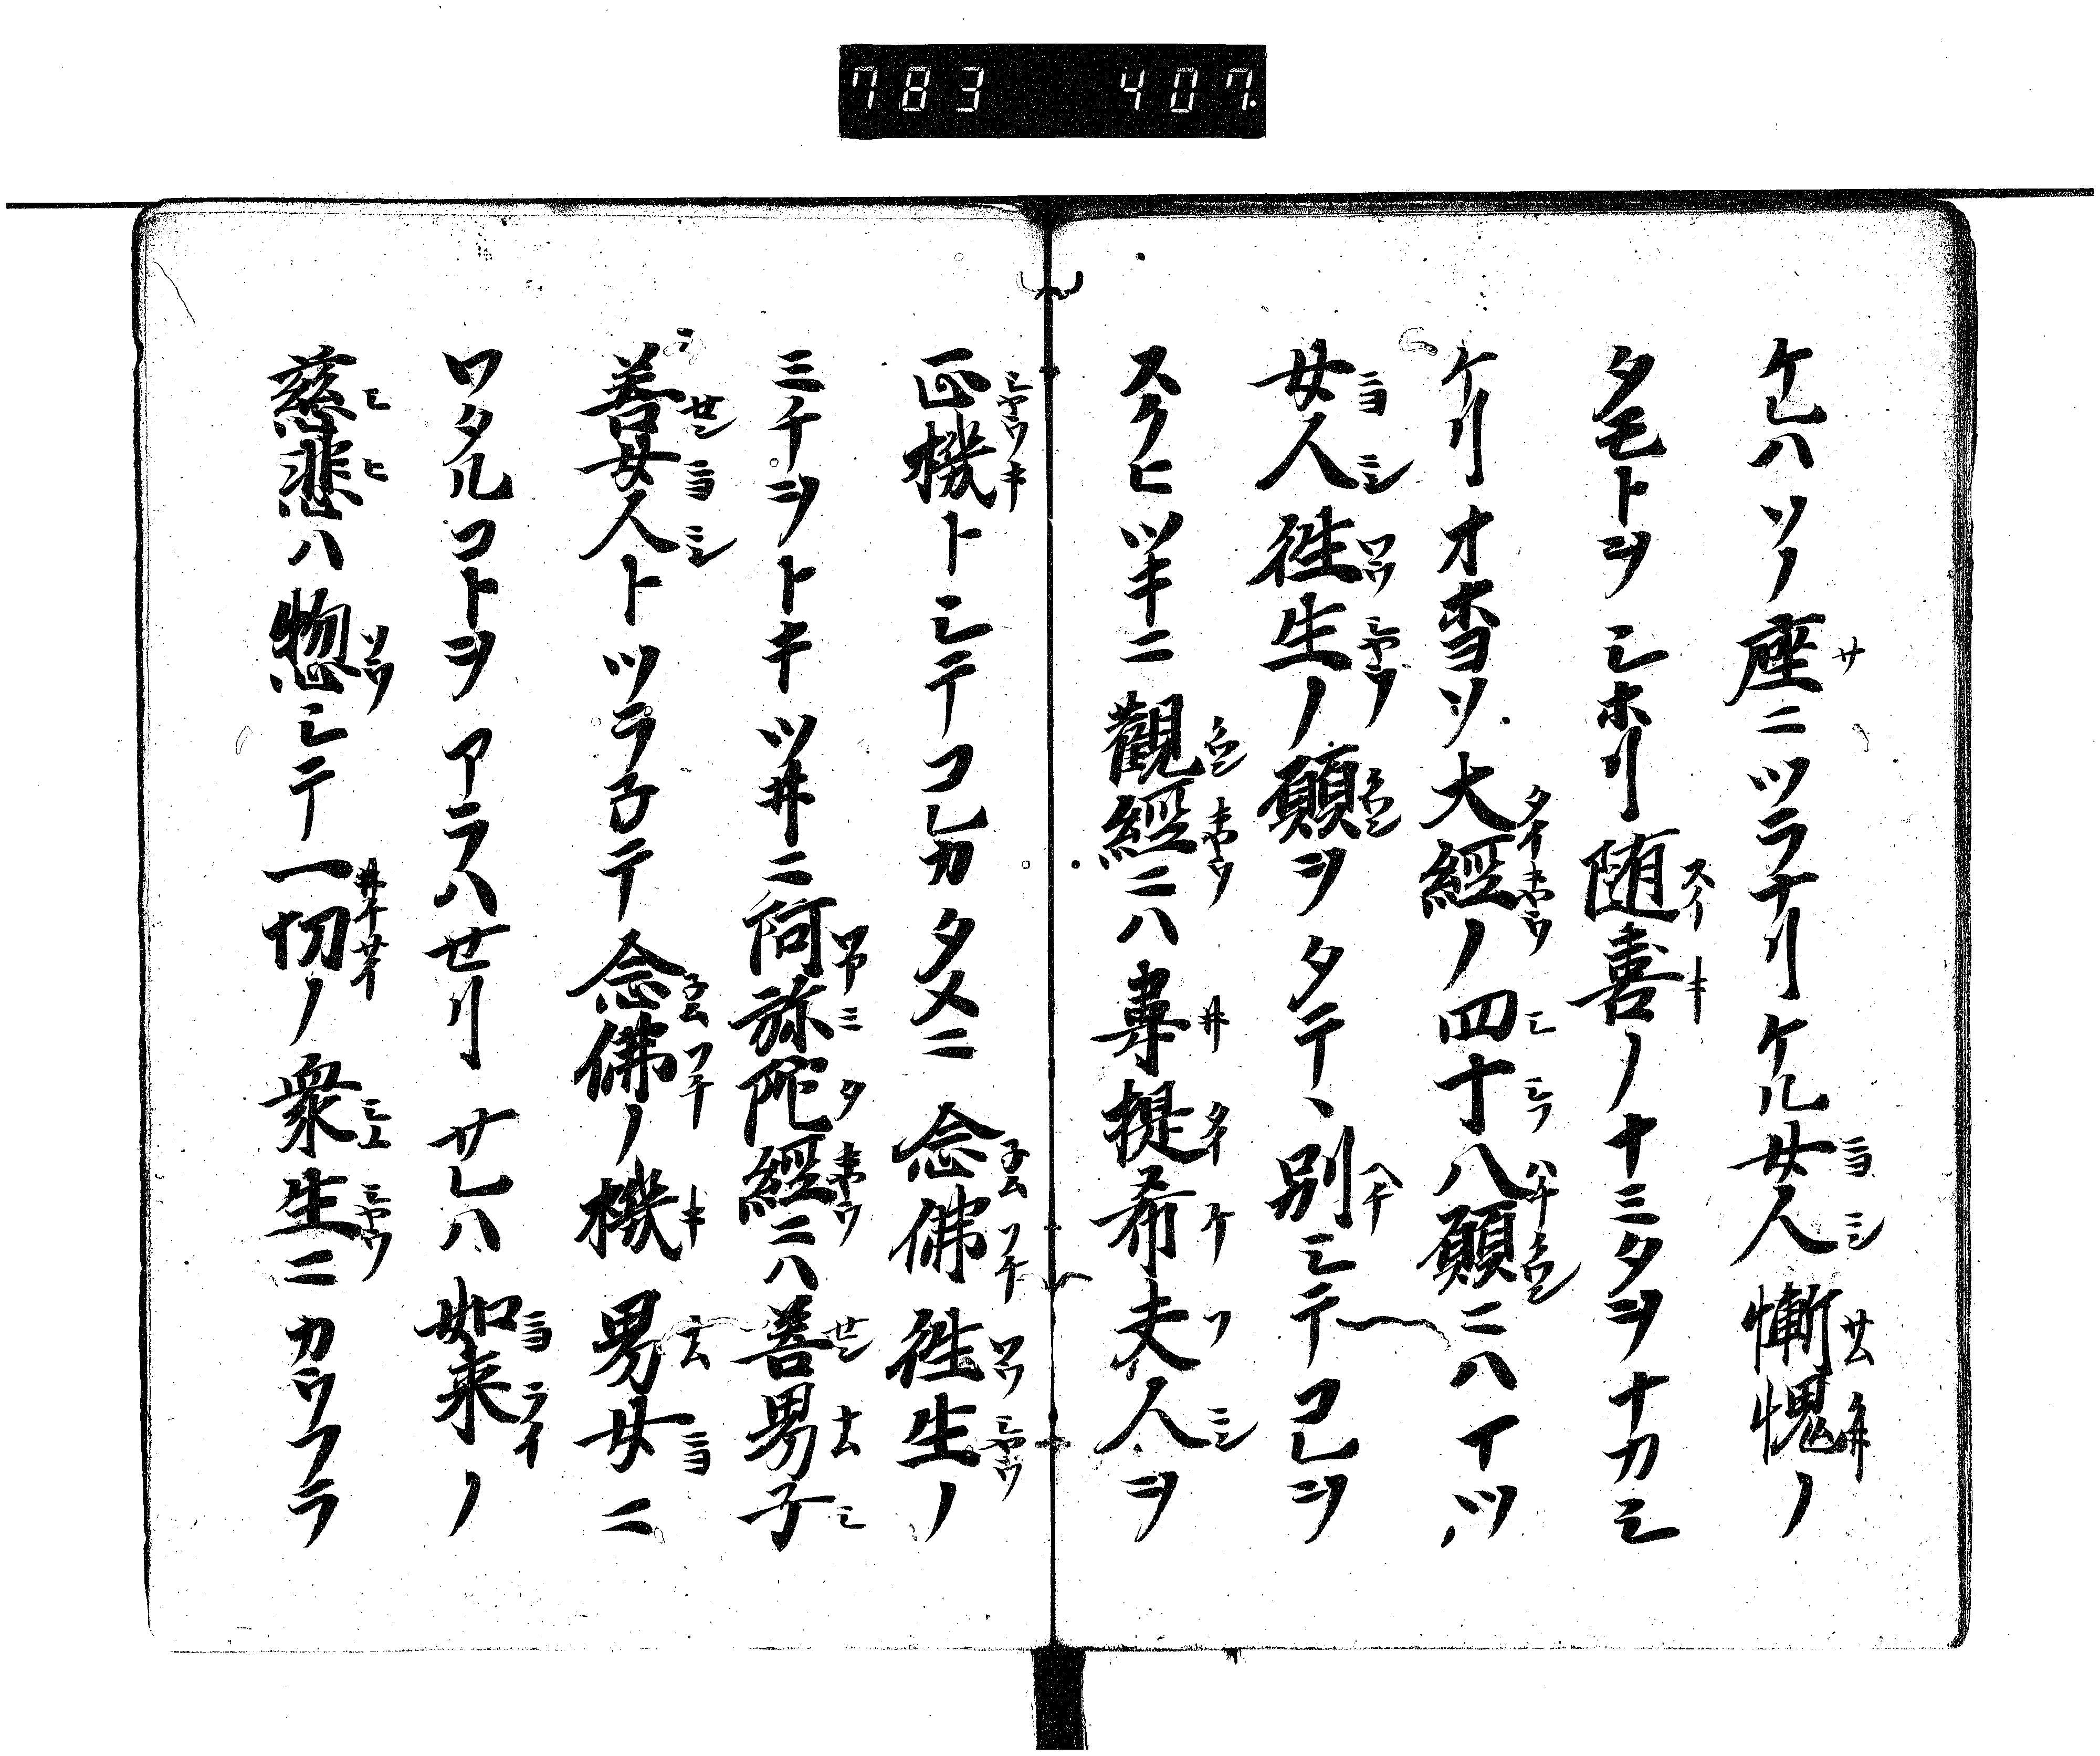 783 407.
ケレハソノ座ニツラナリケル女人慚愧ノ
タモトヲシホリ随喜ノナミタヲナカシ
ケリオホヨソ大經ノ四十八願ニハイツ
女人往生ノ願ヲタテ、別シテコレヲ
スクヒツキニ觀經ニハ韋提希夫人ヲ
正機トシテコレカタメニ念佛往生ノ
ミチヲトキツ井ニ阿弥陀經ニハ善男子
善女人トツラ子テ念佛ノ機男女ニ
ワタルコトヲアラハセリサレハ如来ノ
慈悲ハ惣シテ一切ノ衆生ニカウフラ